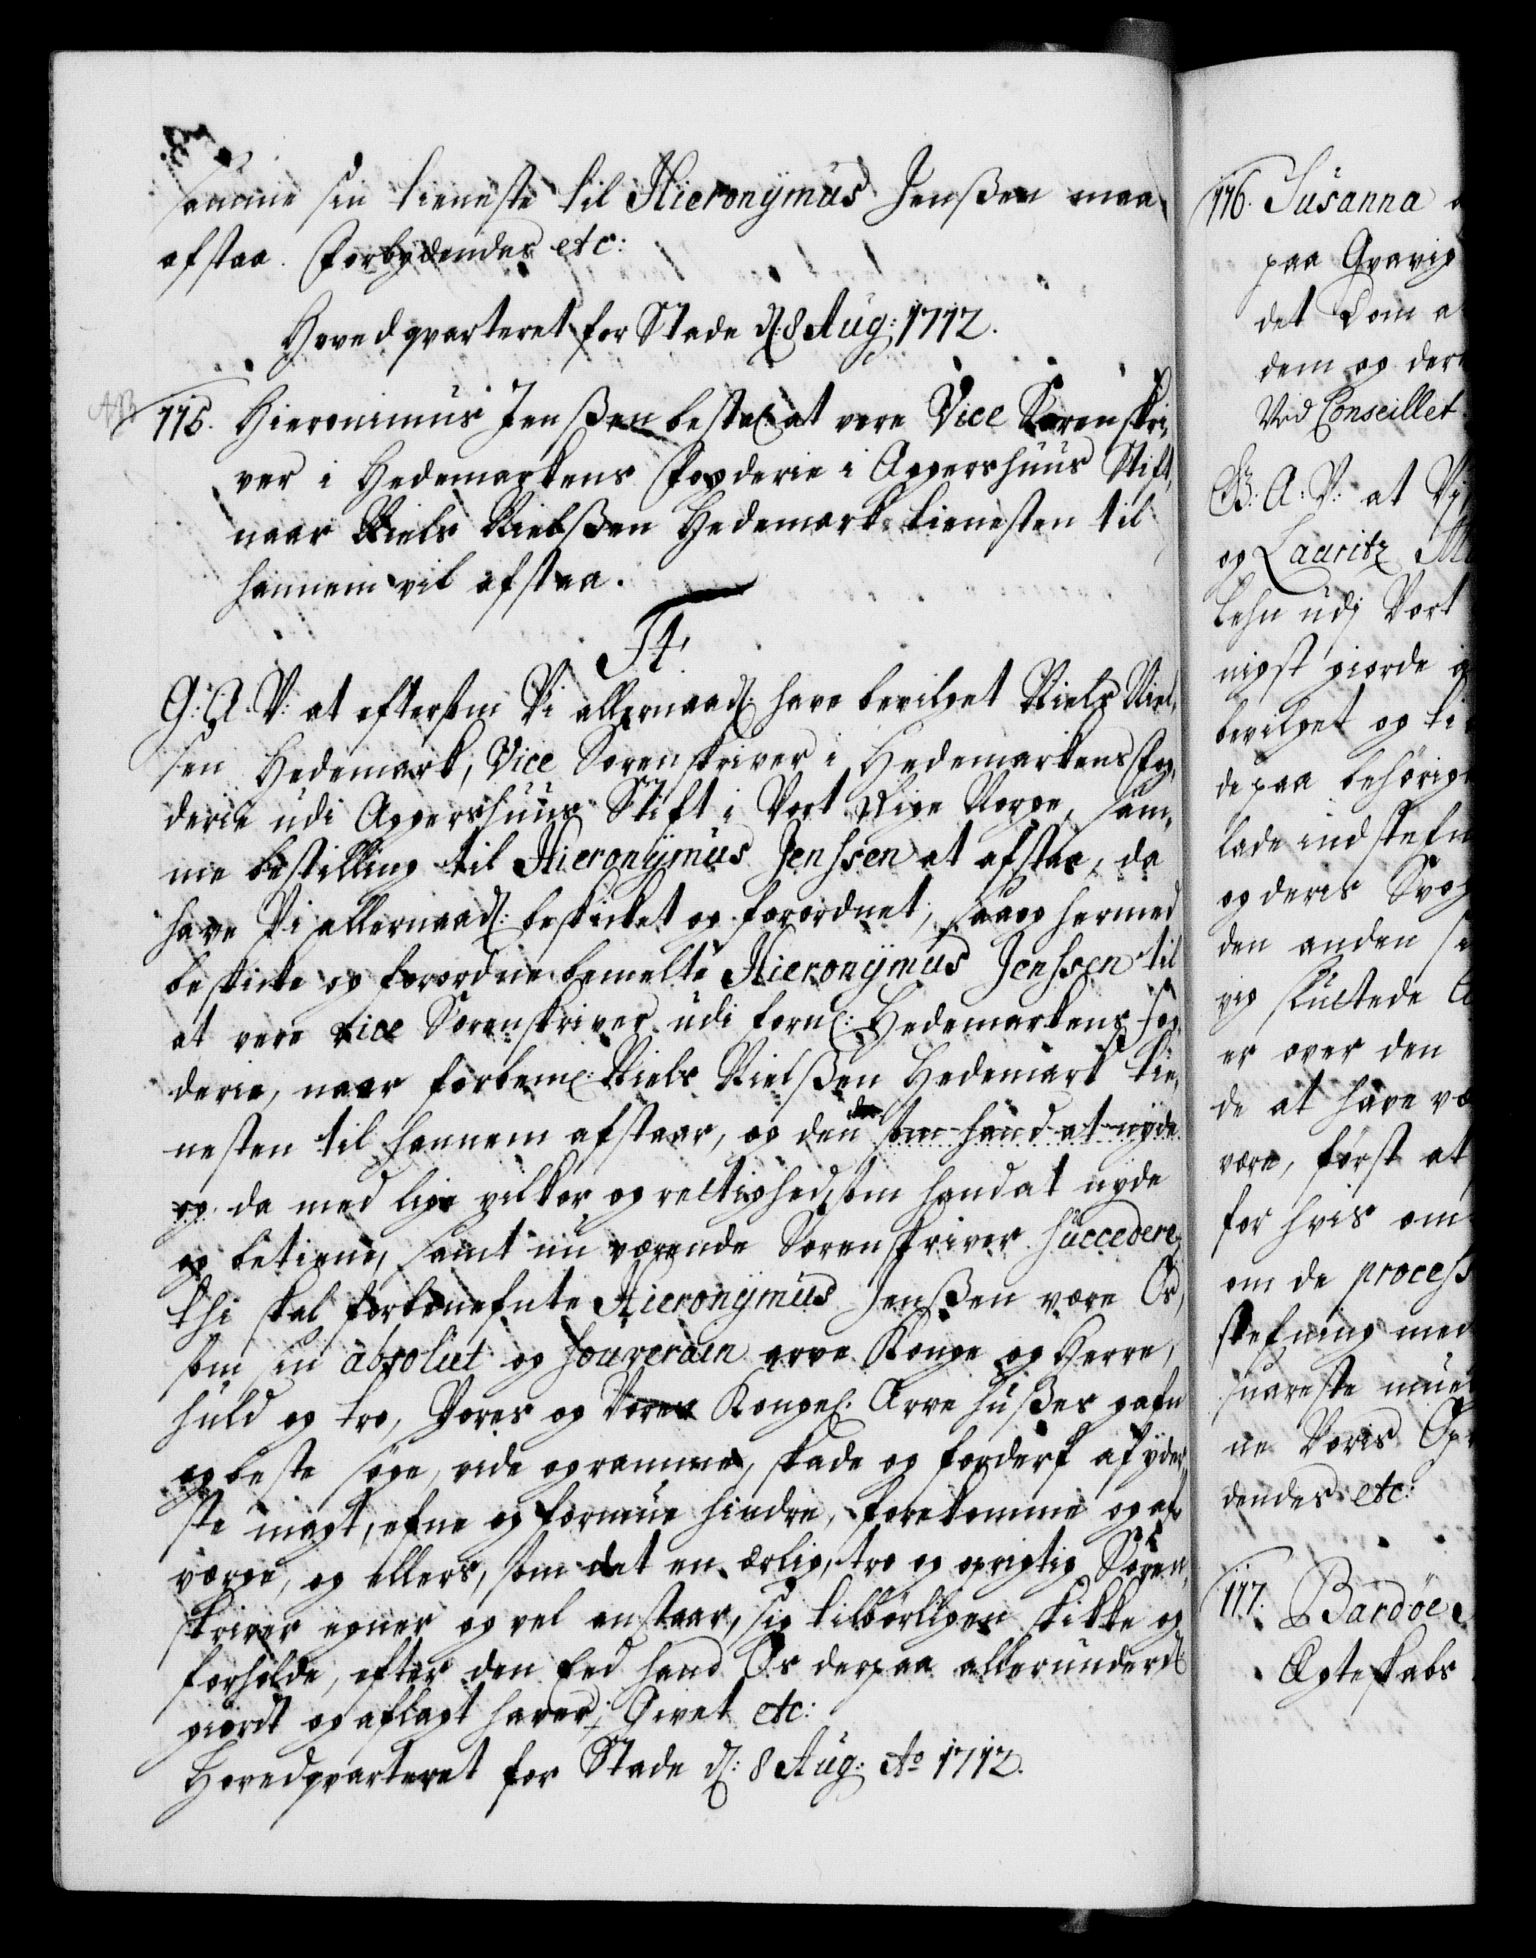 samme sin tieneste til Hieronÿmus Jenßen maa
afstaa. Forbydendes etc:
Hovedqvarteret for Stade d: 8 Aug: 1712.
115. Hieronimus Jenßen bestel: at vere Vice Sorenskri,
ver i Hedemarkens Fogderie i Aggershuus Stift,
naar Niels Nielßen Hedemark tienesten til
hannem vil afstaa.
F4.
G: A: V: at eftersom Vi allernaad: have bevilget Niels Niel,
sen Hedemark, Vice Sorenskriver i Hedemarkens Fog,
derie udi Aggershuus Stift i Vort Rige Norge, sam,
me bestilling til Hieronÿmus Jenssen at afstaa, da
have Vi allernaad: beskicket og forordnet, saa og hermed
beskicke og forordne bemelte Hieronÿmus Jenssen til
at vere vice Sorenskriver udi forn: Hedemarkens Fog,
derie, naar forbem: Niels Nielßen Hedemark tie,
nesten til hannem afstaar, og den som hand at nyde
og da med lige vilkor og rettighed, som hand at nyde
og betiene, samt nu værende Sorenskriver succedere,
thi skal forbenefnte Hieronÿmus Jenßen være Os,
som sin absolut og souverain arve Konge og Herre,
huld og tro, Vores og Vores Kongel: Arve Hußes gafn
og beste søge, vide og ramme, skade og forderf af yder,
ste magt, efne og formue hindre, forekomme og af,
værge, og ellers, som det en ærlig, tro og oprigtig Søren,
skriver egner og vel anstaar, sig tilbørligen skikke og
forholde, efter den Eed hand Os derpaa allerunderd:
giordt og aflagt haver; Givet etc:
Hovedqvarteret for Stade d: 8 Aug: Ao 1712.
116. Susanna
paa Gravig
det Dom a
dem og der
Ved Conseillet
G: A: V: at Vi
og Lauritz
lehn udj Vort
nigst giorde
bevilget og ti
de paa behørig
lade indstefn
og deris Svog
den anden s
vig sluctede
er over den
de at have væ
være, først at
for hvis om
om de process
stefning med
suareste mue
ne Voris Op
dendes etc:
117. Bardöe
Ægteskabs